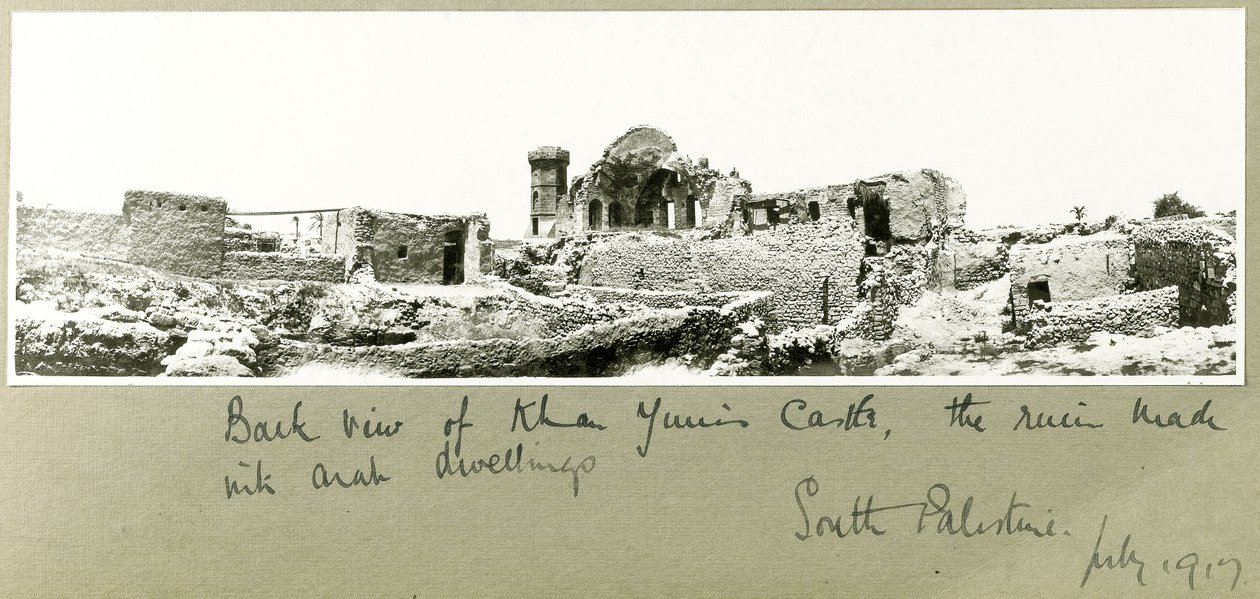 Back view of Khan Yunis Castle, the ruin made
into arab dwellings
South Palestine.
July 1917